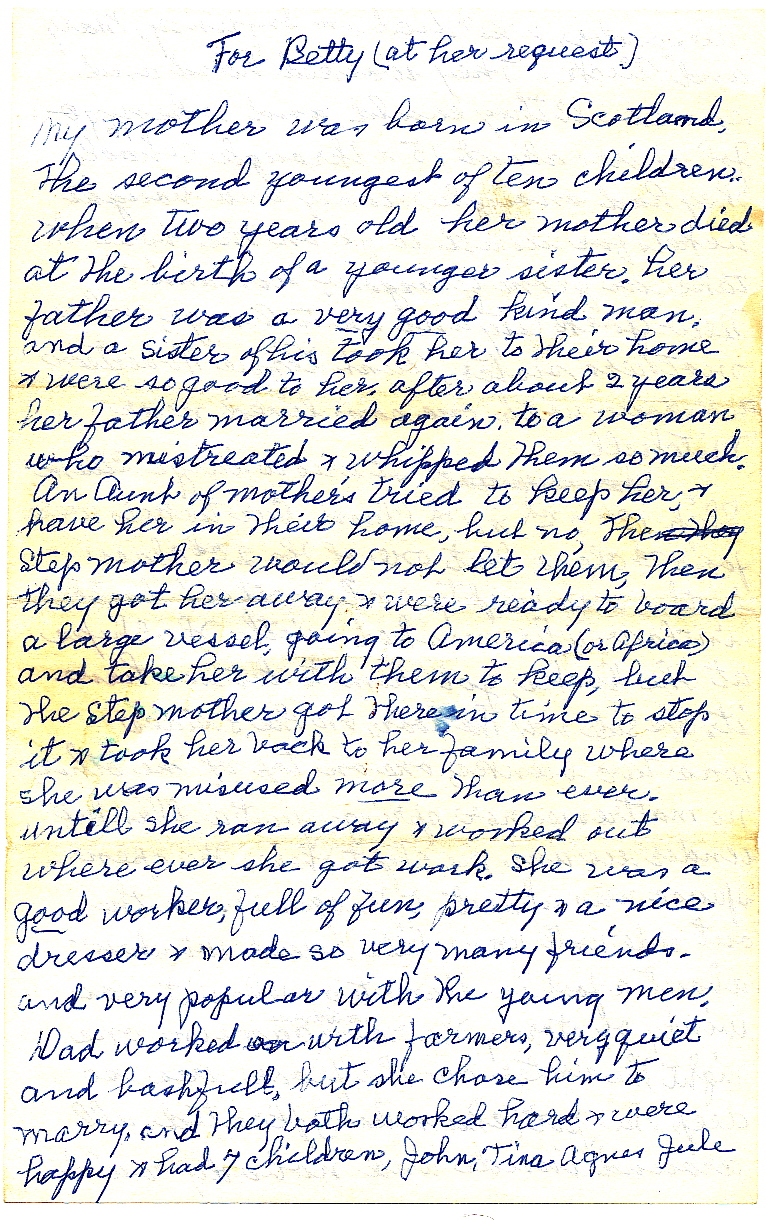 For Betty (at her request)
My mother was born in Scotland,
The second youngest of ten children.
when two years old her mother died
at the birth of a younger sister. her
father was a very good kind man,
and a sister of his took her to their home
& were so good to her. after about 2 years
her father married again. to a woman
who mistreated & whipped them so much.
An Aunt of mother's tried to keep her, &
have her in their home, but no, The
Step mother would not let them, Then
they got her away & were ready to board
a large vessel, going to America (or Africa)
and take her with them to keep, but
the Step mother got there in time to stop
it & took her back to her family where
she was misused more than ever.
untill she ran away & worked out
where ever she got work. She was a
good worker, full of fun, pretty & a nice
dresser & made so very many friends.
and very popular with the young men.
Dad worked with farmers, very quiet
and bashfull, but she chose him to
marry. and they both worked hard & were
happy & had 7 children, John, Tina Agnes Jule